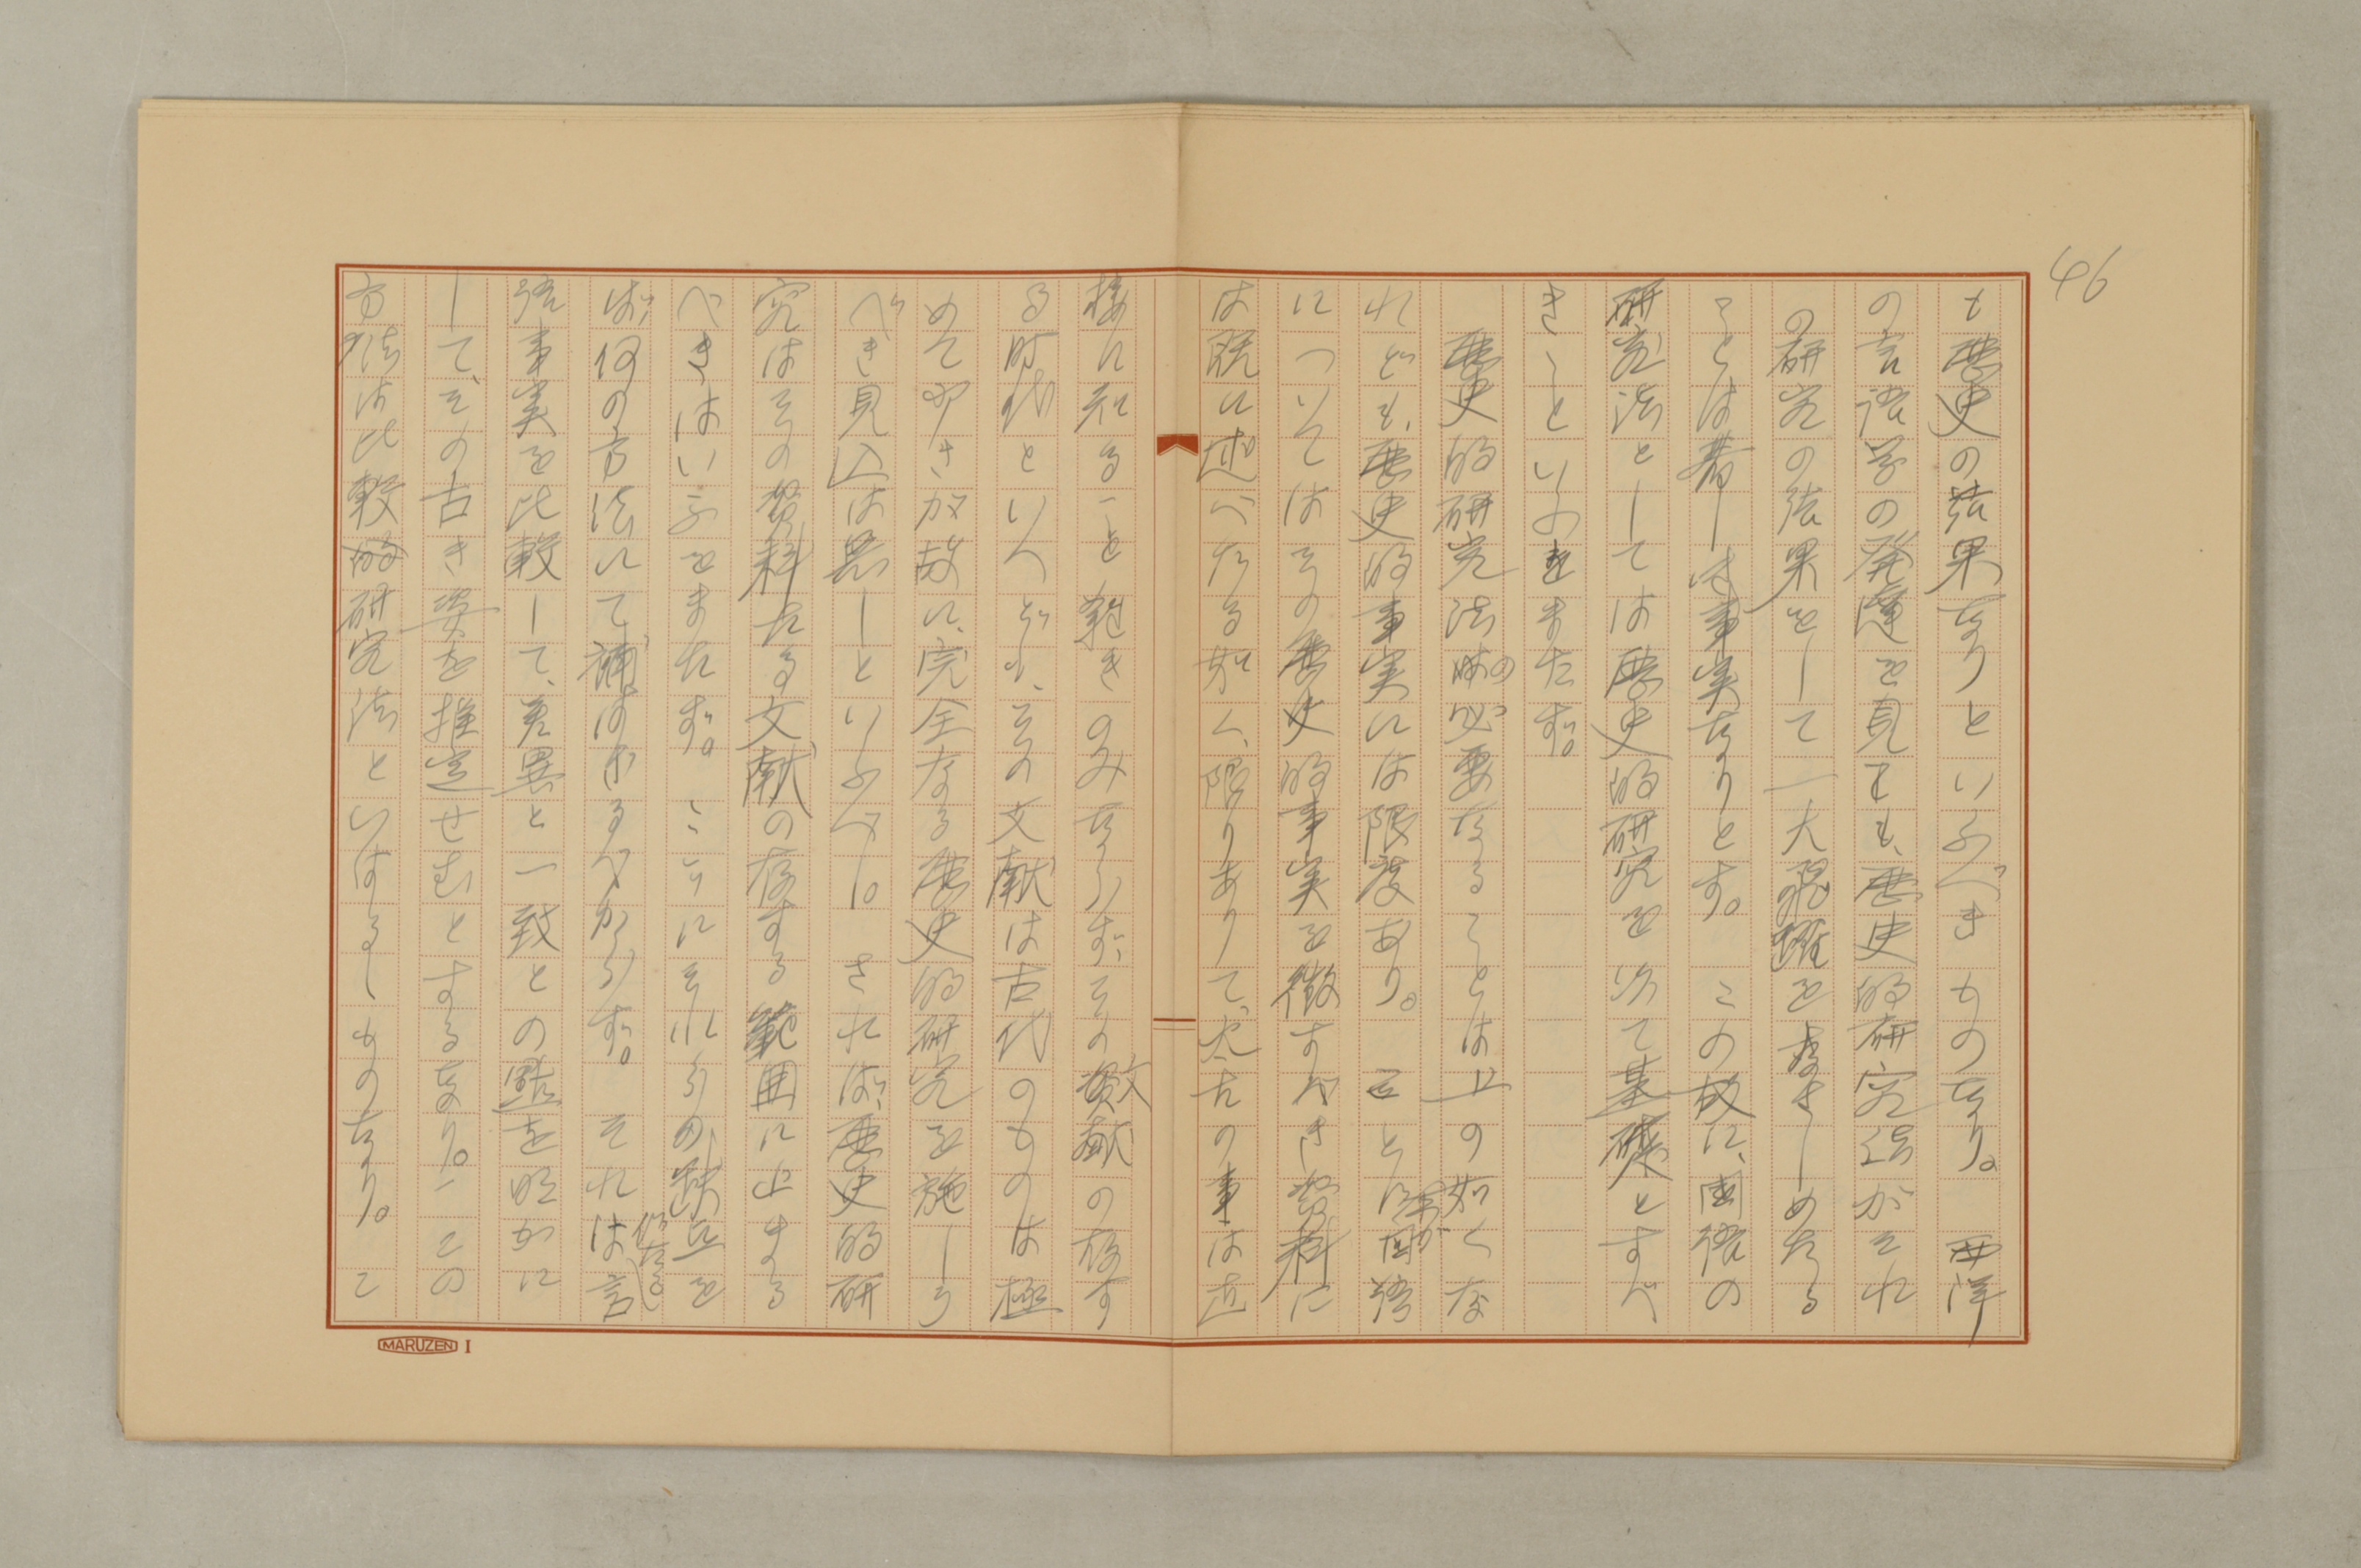 46
も歴史の結果なりといふべきものなり。西洋
の言語学の発達を見ても、歴史的研究法がそれ
の研究の結果をして一大飛躍を為さしめたる
ことは著しき事実なりとす。この故に、国語の
研究法としては歴史的研究を以て基礎とすべ
きことといふをまたず。
歴史的研究法の必要なることは上の如くな
れども、歴史的事実には限度あり。ことに我が国語
についてはその歴史的事実を徴すべき資料に
は既に述べたる如く、限りありて、太古の事は直
接に知ること難きのみならず、その文献の存す
る時代といへども、その文献は古代のものは極
めて少き故に、完全なる歴史的研究を施しう
べき見込は無しといふべし。されば、歴史的研
究はその資料たる文献の存する範囲に止まる
べきはいふをまたず。ここにそれらの缺点を
ば、何の方法にて補はざるべからず。それは言
語事実を比較して、差異と一致との點を明かに
して、その古き姿を推定せむとするなり。この
方法は比較的研究法といはるゝものなり。こ
MARUZEN I